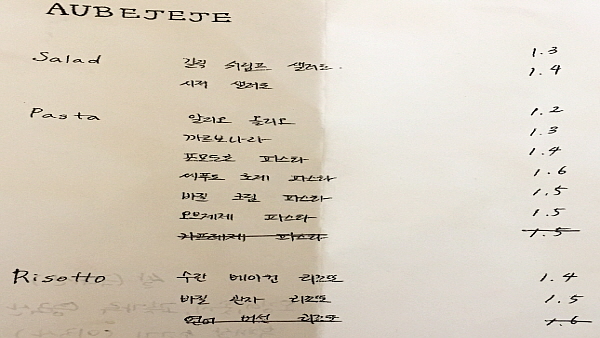 AUBEJEJE
Salad 갈릭 쉬림프 샐러드 1.3
시저 샐러드 1.4
Pasta 알리오 올리오 1.2
까르보나라 1.3
포모도로 파스타 1.4
씨푸드 로제 파스타 1.6
바질 크림 파스타 1.5
오브제제 파스타 1.5
파스타 1.5
Risotto 수란 베이컨 리조또 1.4
바질 관자 리조또 1.5
연어 버섯 리조또 1.6